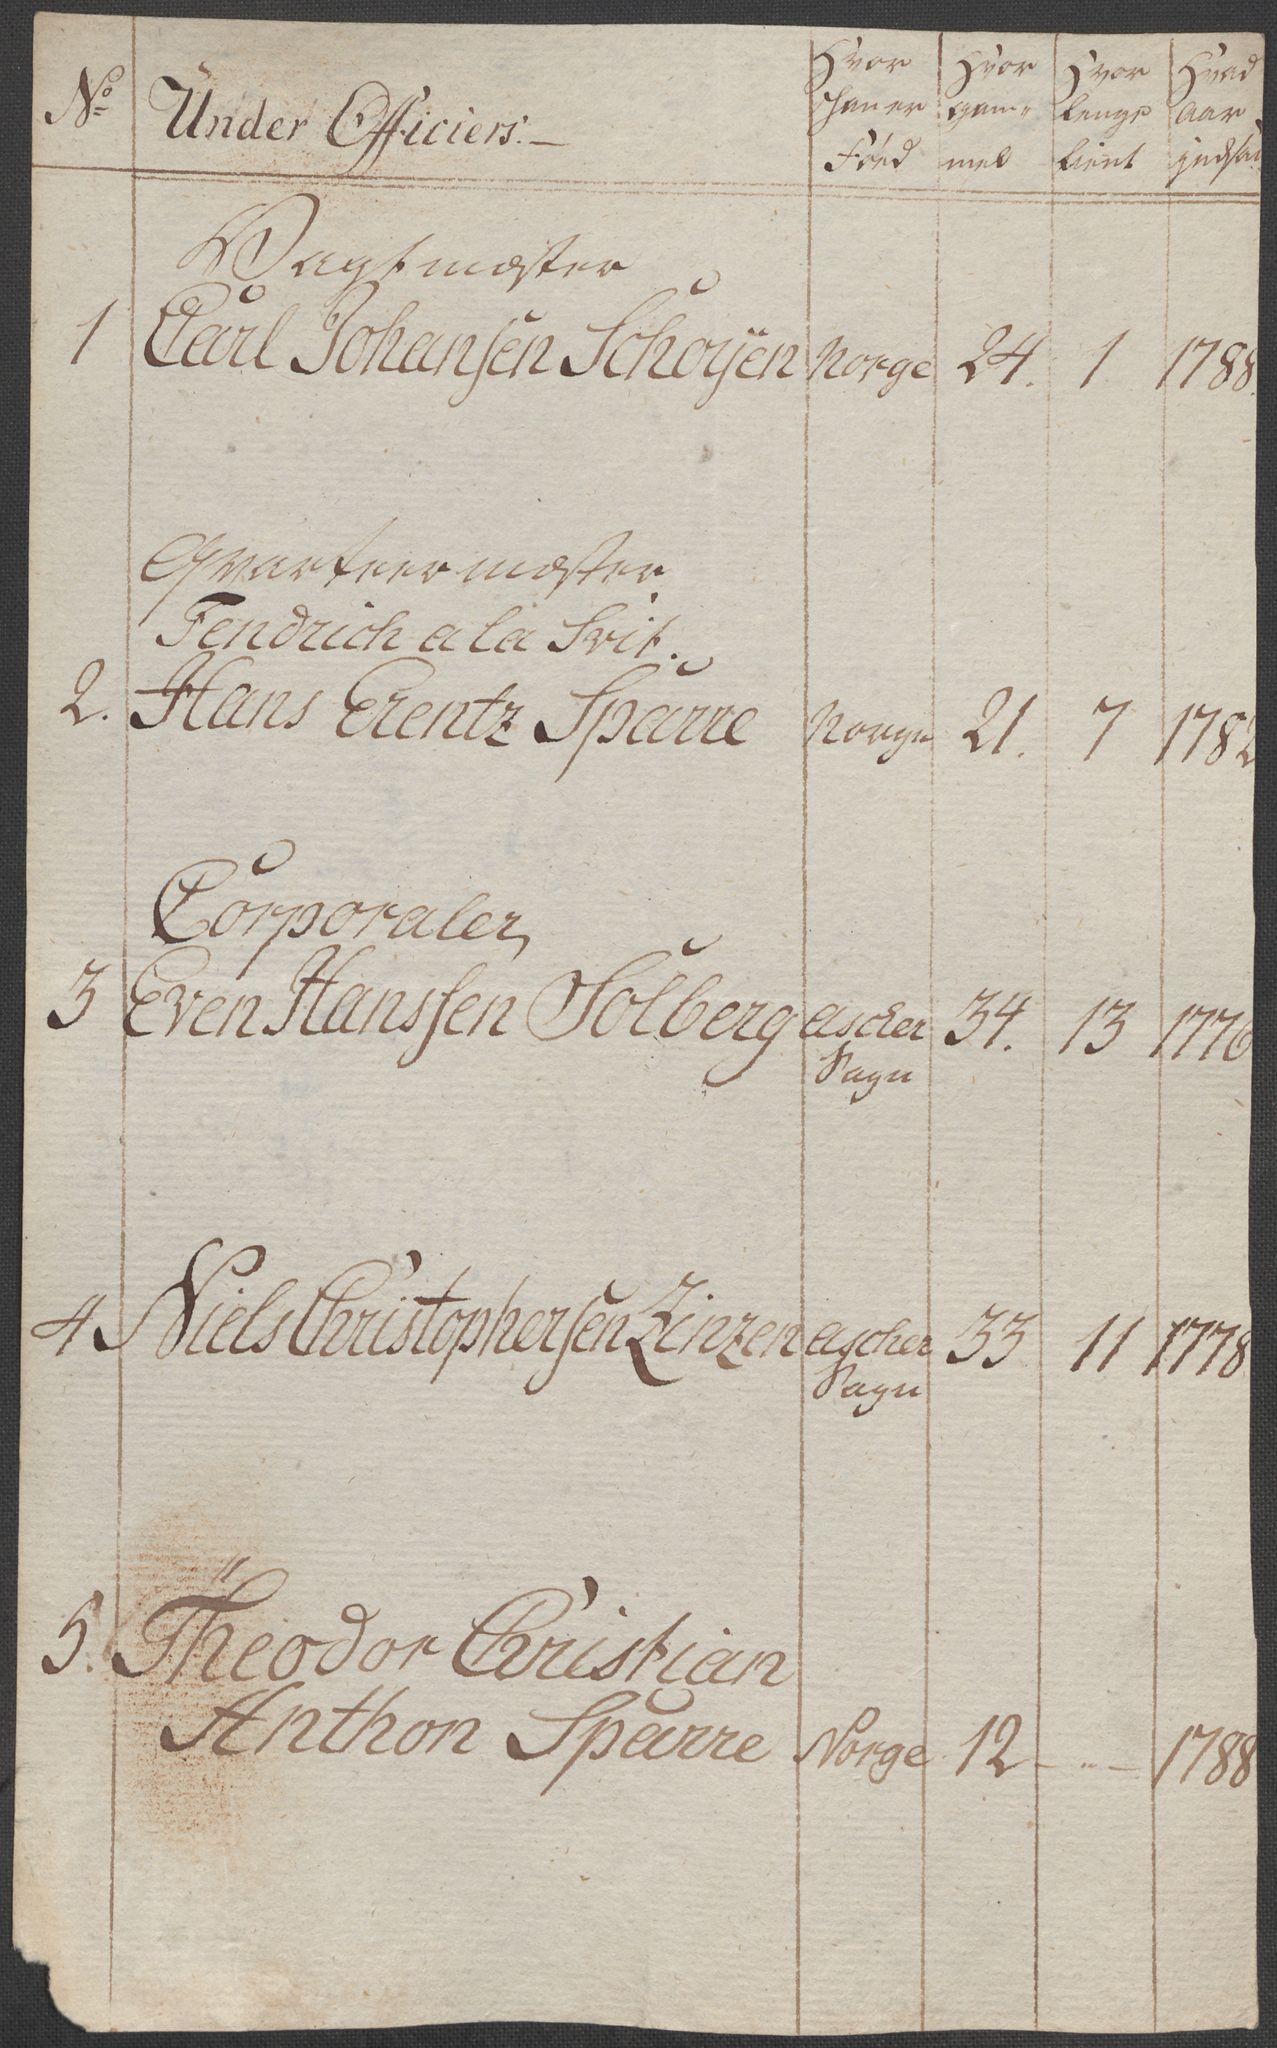 No Under Officiers. Hvor han er Föed Hvor gam- mel Hvor lenge tient Hvad aar
Vagtmæster
1 Carl Johansen Schoÿen Norge 24. 1 1788.
Qvarteermæster
Fendrich a la Svit.
2. Hans Erentz Sparre Norge 21. 7 1782
Corporaler,
3 Even Hanssen Solberg ascher 34. 13 1776
Sagn
4 Niels Christophersen Zinzen ascher 33 11 1778
Sagn
5. Theodor Christian
Anthon Sparre Norge 12 - " - 1788